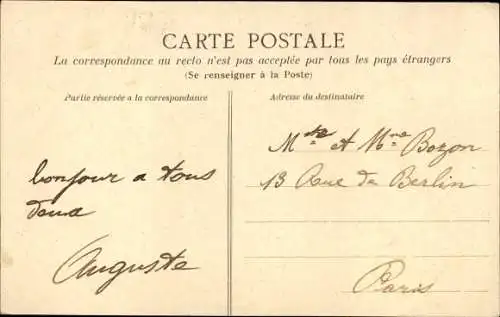 CARTE POSTALE
La correspondance au recto n'est pas acceptée par tous les pays étrangers
(Se renseigner à la Poste)
Partie réservée a la correspondance
bonjour a tous
deux
Auguste
Adresse du destinataire
Mr et Mme Bozon
13 Rue de Berlin
Paris